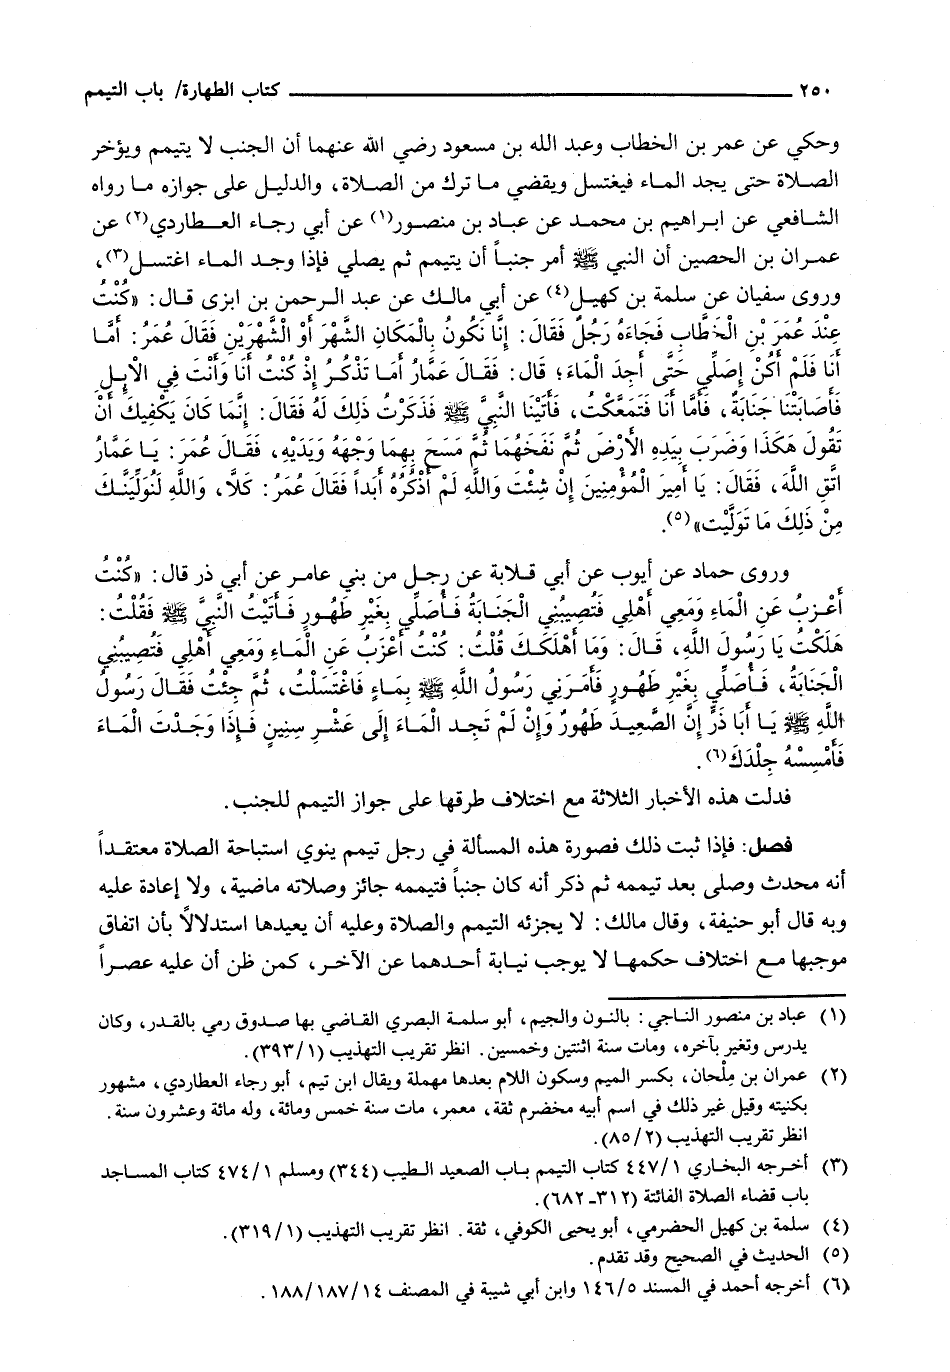 ٢٥٠ كتاب الطهارة/ باب التيمم
وحكي عن عمر بن الخطاب وعبد الله بن مسعود رضي الله عنهما أن الجنب لا يتيمم ويؤخر
الصلاة حتى يجد الماء فيغتسل ويقضي ما ترك من الصلاة، والدليل على جوازه ما رواه
الشافعي عن ابراهيم بن محمد عن عباد بن منصور(١) عن أبي رجاء العطاردي(٢) عن
عمران بن الحصين أن النبي ﷺ أمر جنباً أن يتيمم ثم يصلي فإذا وجد الماء اغتسل(٣)،
وروى سفيان عن سلمة بن كهيل(٤) عن أبي مالك عن عبد الرحمن بن ابزى قال: «كُنْتُ
عِنْدَ عُمَرَ بْنِ الْخَطَّابِ فَجَاءَهُ رَجُلٌ فَقَالَ: إِنَّا نَكُونُ بِالْمَكَانِ الشَّهْرَ أَوْ الشَّهْرَيْنِ فَقَالَ عُمَرُ: أَمَّا
أَنَا فَلَمْ أَكُنْ إِصَلِّي حَتَّى أَجِدَ الْمَاءَ؛ قال: فَقَالَ عَمَّارُ أَمَا تَذْكُرُ إِذْ كُنْتُ أَنَا وَأَنْتَ فِي الْإِبِلِ
فَأَصَابَتْنَا جَنَابَةٌ، فَأَمَّا أَنَا فَتَمَعَّكْتُ، فَأَتَيْنَا النَّبِيَّ ﷺ فَذَكَرْتُ ذَلِكَ لَهُ فَقَالَ: إِنَّمَا كَانَ يَكْفِيكَ أَنْ
تَقُولَ هَكَذَا وَضَرَبَ بِيَدِهِ الأَرْضَ ثُمَّ نَفَخَهُمَا ثُمَّ مَسَحَ بِهِمَا وَجْهَهُ وَيَدَيْهِ، فَقَالَ عُمَرَ: يَا عَمَّارُ
اتَّقِ اللَّهَ، فَقَالَ: يَا أَمِيرَ الْمُؤْمِنِينَ إِنْ شِئْتَ وَاللَّهِ لَمْ أَذْكُرْهُ أَبَداً فَقَالَ عُمَرُ: كَلَّا، وَاللَّهِ لَنُوَلِّيَنَّكَ
مِنْ ذَلِكَ مَا تَوَلَّيْتَ»(٥).
وروى حماد عن أيوب عن أبي قلابة عن رجل من بني عامر عن أبي ذر قال: «كُنْتُ
أَعْزَبُ عَنِ الْمَاءِ وَمَعِي أَهْلِي فَتُصِيبُنِي الْجَنَابَةُ فَأُصَلِّي بِغَيْرِ طَهُورٍ فَأَتَيْتُ النَّبِيَّ ﷺ فَقُلْتُ:
هَلَكْتُ يَا رَسُولَ اللَّهِ، قَالَ: وَمَا أَهْلَكَكَ قُلْتُ: كُنْتُ أَعْزَبُ عَنِ الْمَاءِ وَمَعِي أَهْلِي فَتُصِيبُنِي
الْجَنَابَةُ، فَأُصَلِّي بِغَيْرِ طَهُورٍ فَأَمَرَنِي رَسُولُ اللَّهِ ﷺ بِمَاءٍ فَاغْتَسَلْتُ، ثُمَّ جِئْتُ فَقَالَ رَسُولُ
اللَّهِ ﷺ يَا أَبَا ذَرٍّ إِنَّ الصَّعِيدَ طَهُورٌ وَإِنْ لَمْ تَجِدِ الْمَاءَ إِلَى عَشْرِ سِنِينٍ فَإِذَا وَجَدْتَ الْمَاءَ
فَأَمْسِسْهُ جِلْدَكَ(٦).
فدلت هذه الأخبار الثلاثة مع اختلاف طرقها على جواز التيمم للجنب.
فصل: فإذا ثبت ذلك فصورة هذه المسألة في رجل تيمم ينوي استباحة الصلاة معتقداً
أنه محدث وصلى بعد تيممه ثم ذكر أنه كان جنباً فتيممه جائز وصلاته ماضية، ولا إعادة عليه
وبه قال أبو حنيفة، وقال مالك: لا يجزئه التيمم والصلاة وعليه أن يعيدها استدلالاً بأن اتفاق
موجبها مع اختلاف حكمها لا يوجب نيابة أحدهما عن الآخر، كمن ظن أن عليه عصراً
(١) عباد بن منصور الناجي: بالنون والجيم، أبو سلمة البصري القاضي بها صدوق رمي بالقدر، وكان
يدرس وتغير بآخره، ومات سنة اثنتين وخمسين. انظر تقريب التهذيب (٣٩٣/١).
(٢) عمران بن مِلْحان، بكسر الميم وسكون اللام بعدها مهملة ويقال ابن تيم، أبو رجاء العطاردي، مشهور
بكنيته وقيل غير ذلك في اسم أبيه مخضرم ثقة، معمر، مات سنة خمس ومائة، وله مائة وعشرون سنة.
انظر تقريب التهذيب (٨٥/٢).
(٣) أخرجه البخاري ٤٤٧/١ كتاب التيمم باب الصعيد الطيب (٣٤٤) ومسلم ٤٧٤/١ كتاب المساجد
باب قضاء الصلاة الفائتة (٣١٢ـ ٦٨٢).
(٤) سلمة بن كهيل الحضرمي، أبو يحيى الكوفي، ثقة. انظر تقريب التهذيب (٣١٩/١).
(٥) الحديث في الصحيح وقد تقدم.
(٦) أخرجه أحمد في المسند ١٤٦/٥ وابن أبي شيبة في المصنف ١٨٨/١٨٧/١٤.